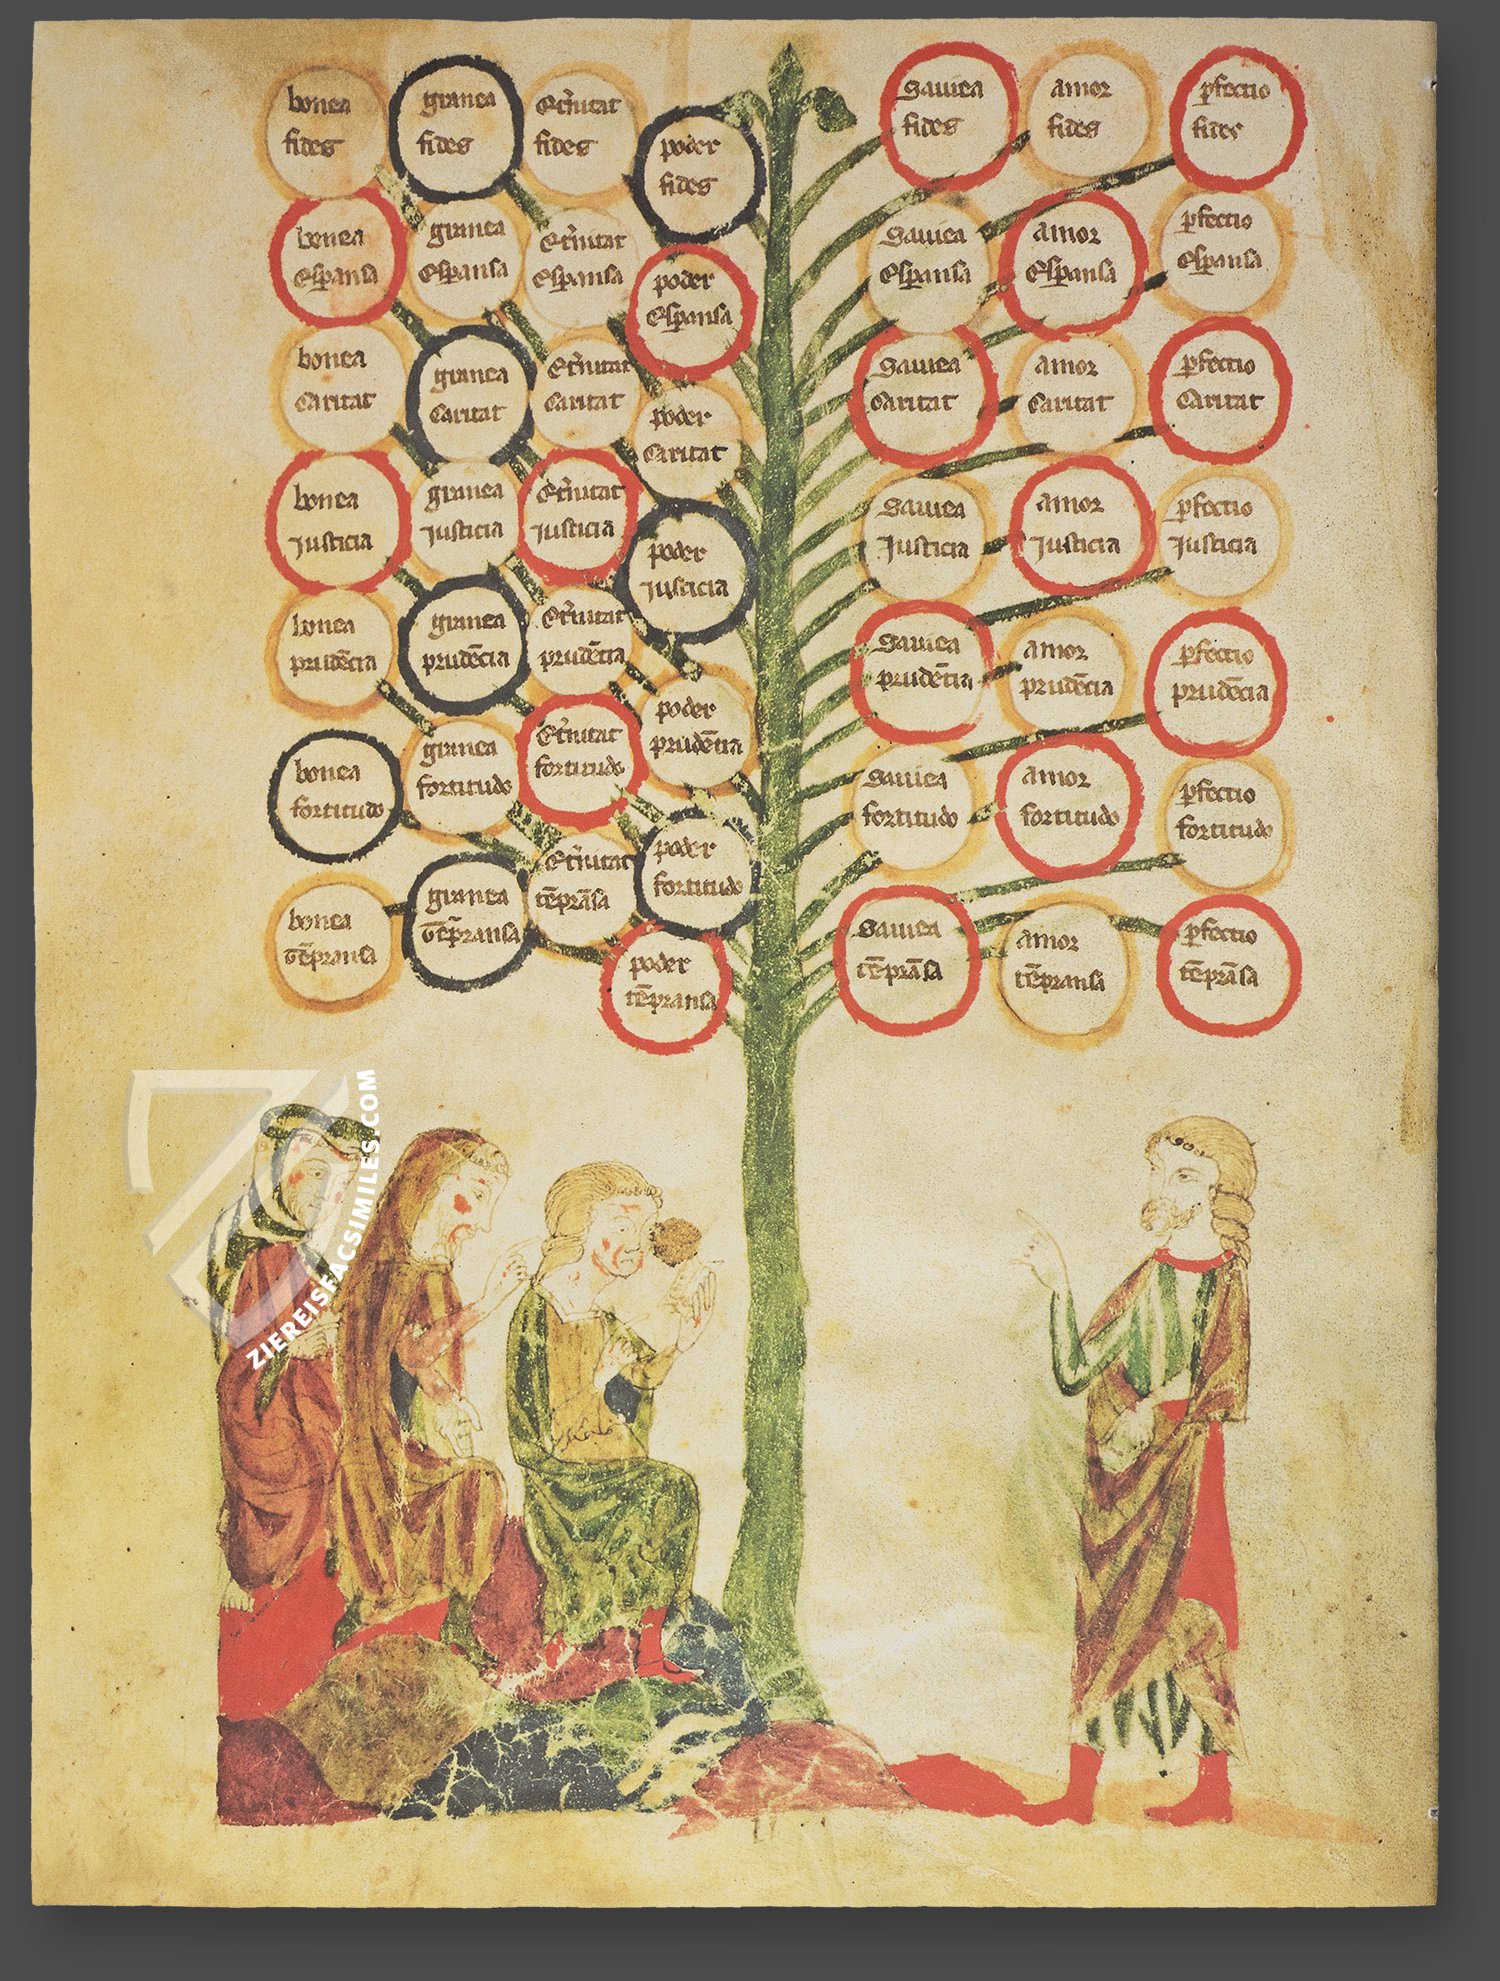 bonea
fides
granea
fides
Et̃nitat
fides
poder
fides
Sauiea
fides
amor
fides
ꝑfectio
fides
bonea
Esꝑansa
granea
Esꝑansa
Et̃nitat
Esꝑansa
poder
Esꝑansa
Sauiea
Esꝑansa
amor
Esꝑansa
ꝑfectio
Esꝑansa
bonea
Caritat
granea
Caritat
Et̃nitat
Caritat
poder
Caritat
Sauiea
Caritat
amor
Caritat
ꝑfectio
Caritat
bonea
Justicia
granea
Justicia
Et̃nitat
Justicia
poder
Justicia
Sauiea
Justicia
amor
Justicia
ꝑfectio
Justicia
bonea
prudẽcia
granea
prudẽcia
Et̃nitat
prudẽcia
poder
prudẽcia
Sauiea
prudẽcia
amor
prudẽcia
ꝑfectio
prudẽcia
bonea
fortitudo
granea
fortitudo
Et̃nitat
fortitudo
poder
fortitudo
Sauiea
fortitudo
amor
fortitudo
ꝑfectio
fortitudo
bonea
tẽpransa
granea
tẽpransa
Et̃nitat
tẽprãsa
poder
tẽpransa
Sauiea
tẽprãsa
amor
tẽpransa
ꝑfectio
tẽprãsa
ZIEREISFACSIMILES.COM